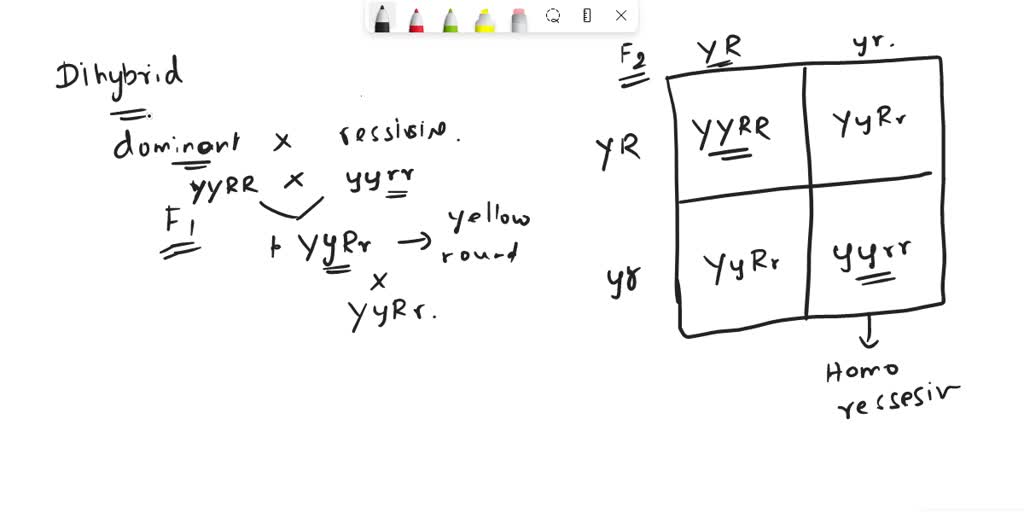 Dihybrid
dominant x ressisive.
YYRR x yyrr
F1
YyRr → yellow
round
x
YyRr.
F2
YR yr.
YR YYRR YyRr
yr YyRr yyrr
Homo
ressesiv